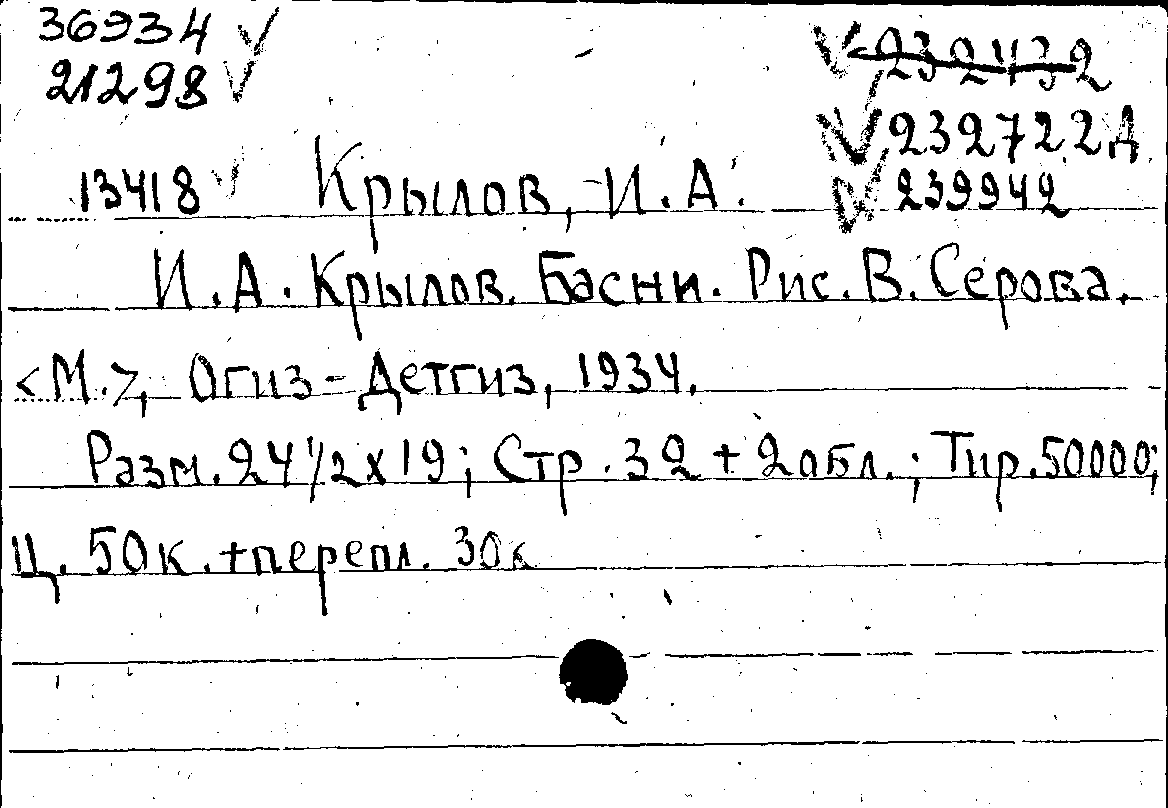 36934
21298
13418
232432
232722Д
239942
Крылов, И.А.
И.А. Крылов. Басни. Рис. В. Серова.
<М.>, Огиз-Детгиз, 1934.
Разм. 24 1/2 х 19; Стр. 32 + 2 обл.; Тир. 50000;
Ц. 50к. + перепл. 30к